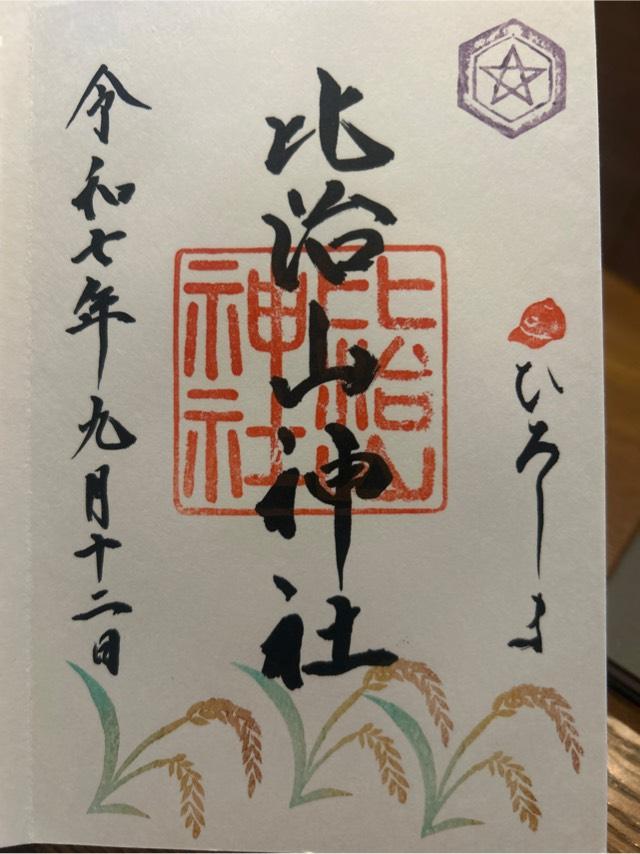 ひろしま
比治山神社
比治山
神社
令和七年九月十二日